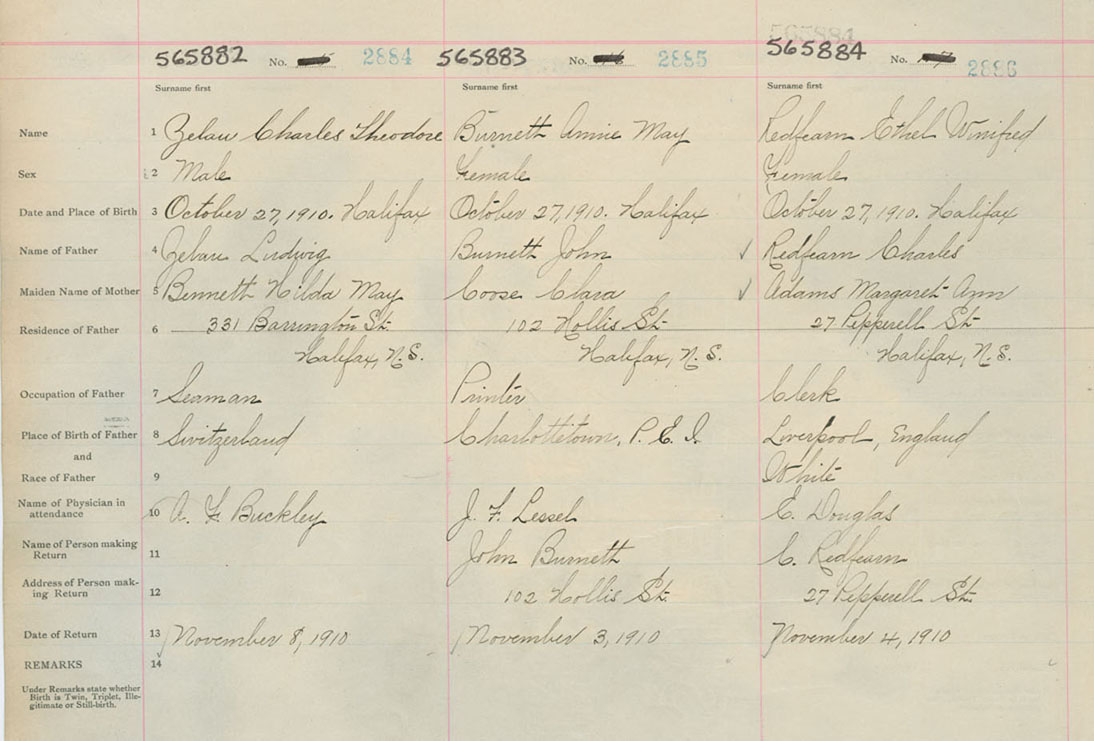 565882 No. 2884 565883 No. 2885 565884 No. 2886
Surname first Surname first Surname first
Name 1 Zelau Charles Theodore Burnett Annie May Redfearn Ethel Winifred
Sex 2 Male Female Female
Date and Place of Birth 3 October 27, 1910. Halifax October 27, 1910. Halifax October 27, 1910. Halifax
Name of Father 4 Zelau Ludwig Burnett John ✓ Redfearn Charles
Maiden Name of Mother 5 Bennett Hilda May Coose Clara ✓ Adams Margaret Ann
Residence of Father 6 331 Barrington St. 102 Hollis St. 27 Pepperell St.
Halifax, N.S. Halifax, N.S. Halifax, N.S.
Occupation of Father 7 Seaman Printer Clerk
Place of Birth of Father 8 Switzerland Charlottetown, P.E.I. Liverpool, England
and
Race of Father 9 White
Name of Physician in attendance 10 A. F. Buckley J. F. Lessel E. Douglas
Name of Person making Return 11 John Burnett C. Redfearn
Address of Person mak-ing Return 12 102 Hollis St. 27 Pepperell St.
Date of Return 13 November 8, 1910 November 3, 1910 November 4, 1910
REMARKS 14
Under Remarks state whether
Birth is Twin, Triplet, Ille-
gitimate or Still-birth.